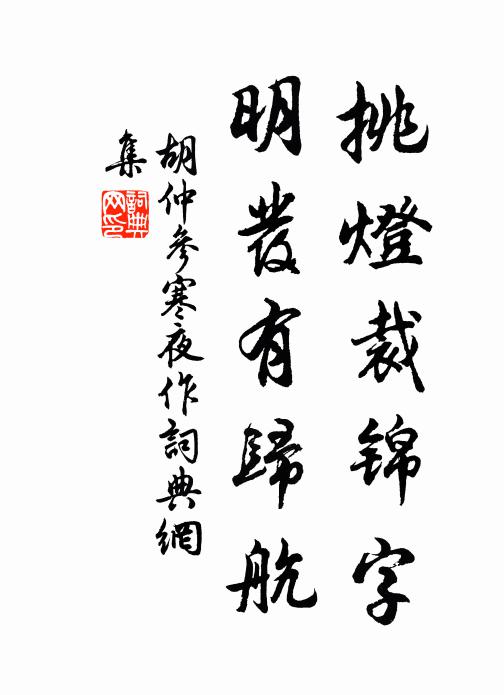 挑燈裁錦字
明發有歸航
胡仲參寒夜作詞典網
集
詞典网印